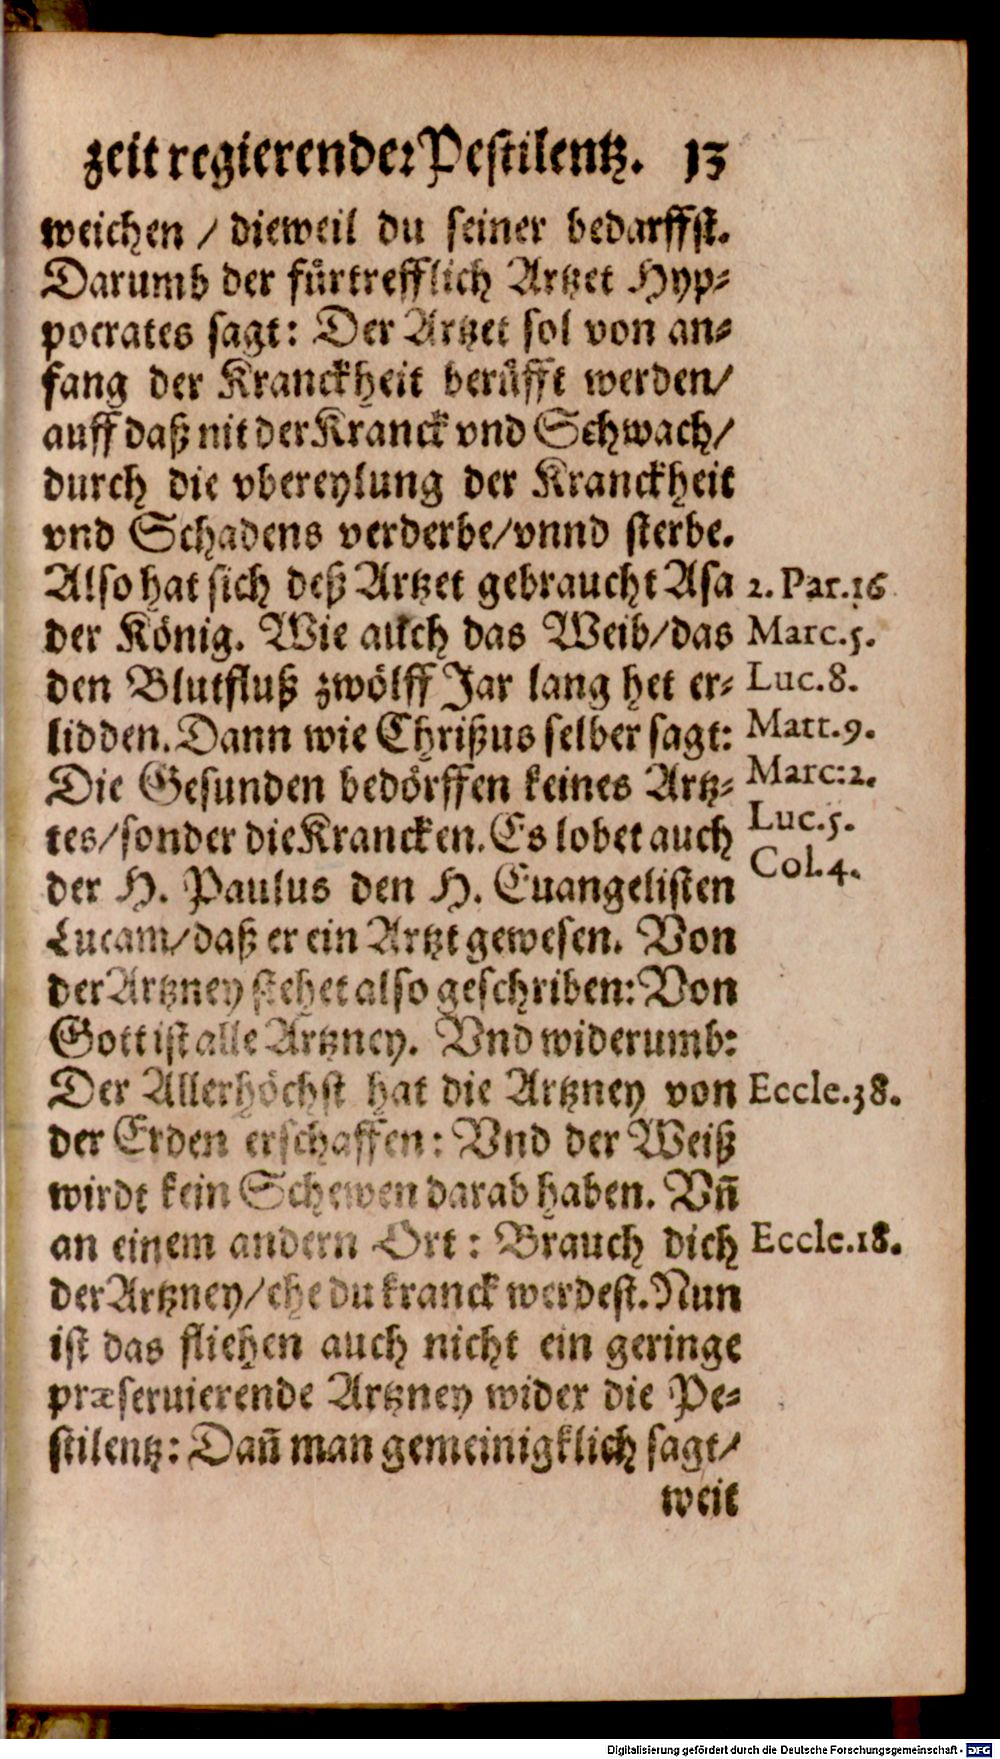 zeit regierender Pestilentz. 13
weichen / dieweil du seiner bedarffst.
Darumb der fürtrefflich Artzet Hyp-
pocrates sagt: Der Artzet sol von an-
fang der Kranckheit berůfft werden/
auff daß nit der Kranck vnd Schwach/
durch die vbereylung der Kranckheit
vnd Schadens verderbe/vnnd sterbe.
Also hat sich deß Artzet gebraucht Asa 2. Par.16
der König. Wie auch das Weib/das Marc.5.
den Blutfluß zwölff Jar lang het er- Luc.8.
lidden. Dann wie Chrißus selber sagt: Matt.9.
Die Gesunden bedörffen keines Artz- Marc:2.
tes/sonder die Krancken. Es lobet auch Luc.5.
der H. Paulus den H. Euangelisten Col.4.
Lucam/daß er ein Artzt gewesen. Von
der Artzney stehet also geschriben: Von
Gott ist alle Artzney. Vnd widerumb:
Der Allerhöchst hat die Artzney von Eccle.38.
der Erden erschaffen: Vnd der Weiß
wirdt kein Schewen darab haben. Vn̄
an einem andern Ort: Brauch dich Eccle.18.
der Artzney/ehe du kranck werdest. Nun
ist das fliehen auch nicht ein geringe
præseruierende Artzney wider die Pe-
stilentz: Dan̄ man gemeinigklich sagt/
weit
Digitalisierung gefördert durch die Deutsche Forschungsgemeinschaft - DFG